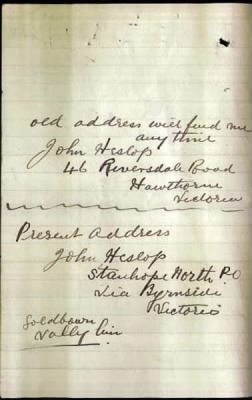 old address will find me
any time
John Heslop
46 Riversdale Road
Hawthorne
Victoria
Present Address
John Heslop
Stanhope North P.O
Via Byrnside
Victoria